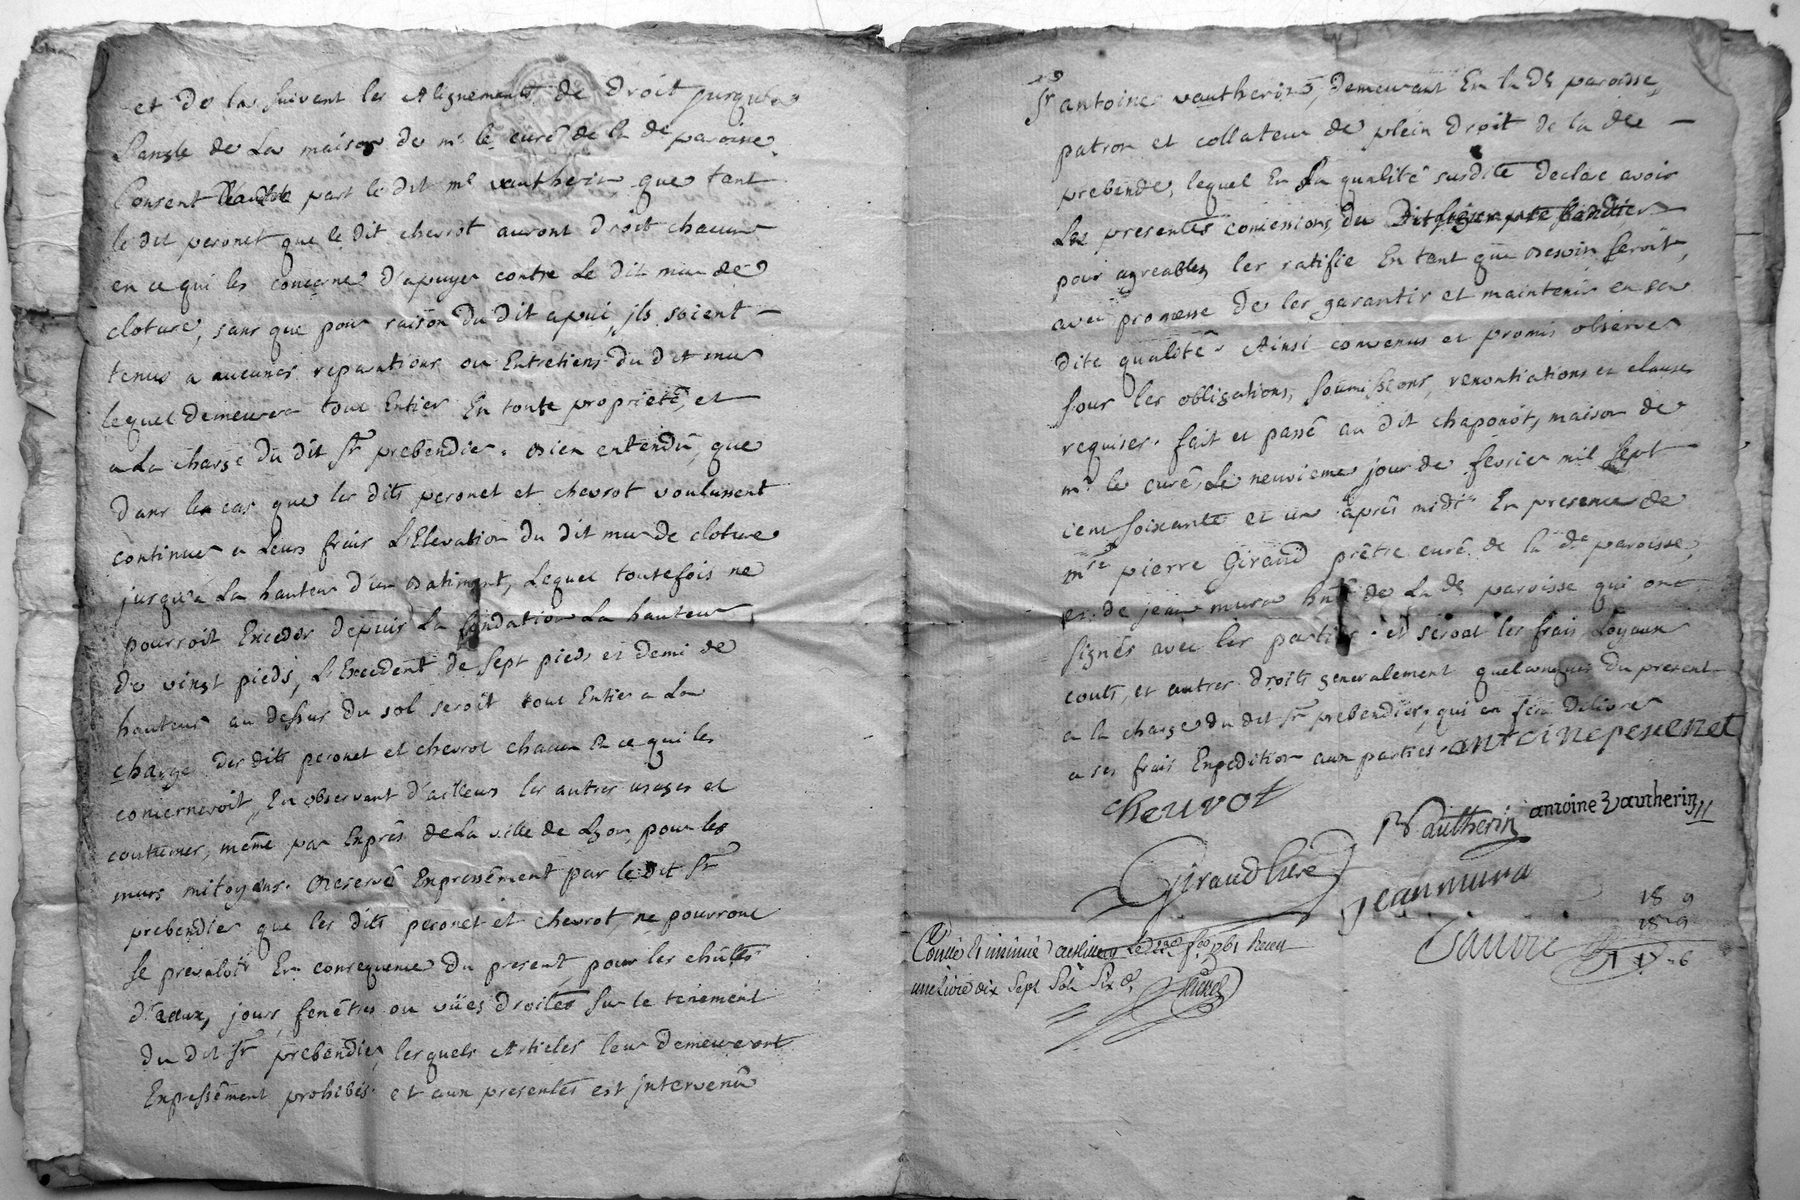 et de la suivent les alignements de droit jusqu'a
L'angle de La maison de mr. le curé de la de paroisse.
Consent part le dit mr vautherin que tant
le dit peronet que le dit chevrot auront droit chacun
en ce qui les concerne d'apuyer contre Le dit mur de
cloture, sans que pour raison du dit apui, jls soient —
tenus a aucunes reparations ou Entretiens du dit mur
lequel demeurera tout Entier En toute proprieté, et
a La charge du dit Sr prebendier. bien entendû, que
dans le cas que les dits peronet et chevrot voulussent
continuer a Leurs frais L'Elevation du dit mur de cloture
jusqu'a La hauteur d'un batiment, Lequel toutefois ne
pourroit Exceder depuis La fondation La hauteur
de vingt pieds, L'Excedent de sept pieds et demi de
hauteur au dessus du sol seroit tout Entier a La
charge des dits peronet et chevrot chacun En ce qui les
concerneroit, En observant d'ailleurs les autres usages et
coutumes, même par Exprès de La ville de Lyon, pour les
murs mitoyens. Reservé Expressément par le dit Sr
prebendier que les dits peronet et chevrot, ne pourront
se prevaloir En consequence du present pour les chûtes
d'eaux, jours, fenêtres ou vües droites sur le tenement
du dit Sr prebendier, lesquels Articles leur demeureront
Expressément prohibés. et aux presentes est jntervenû
Sr antoine vautherin, demeurant En la de paroisse,
patron et collateur de plein droit de la de —
prebende, lequel En sa qualité susdite declare avoir
Les presentes concessions du
pour agreables, les ratifie En tant que besoin seroit,
avec promesse de les garantir et maintenir en sa
dite qualité. Ainsi convenus et promis observer
sous les obligations, soumissions, renontiations et clauses
requises. fait et passé au dit chaponôt, maison de
mr. le curé, Le neuvieme jour de fevrier mil sept
cent soixante et un après midi En presence de
mre pierre Giraud prêtre curé de la de paroisse,
et de jean mura de La de paroisse qui ont
signés avec les parties. et seront les frais Loyaux
couts, et autres droits generalement quelconques du present
a la charge du dit Sr prebendier, qui en fera Delivrer
a ses frais Expedition aux parties. antoine peuenet
cheuvot
Vautherin antoine Vautherin
Giraud Curé
jean mura
18 9
18 9
1 17 6